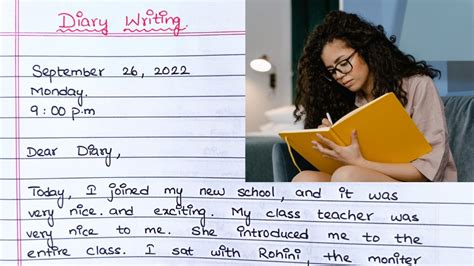 Diary Writing.
September 26, 2022
Monday.
9:00 p.m
Dear Diary,
Today, I joined my new school, and it was
very nice. and exciting. My class teacher was
very nice to me. She introduced me to the
entire class. I sat with Rohini, the moniter